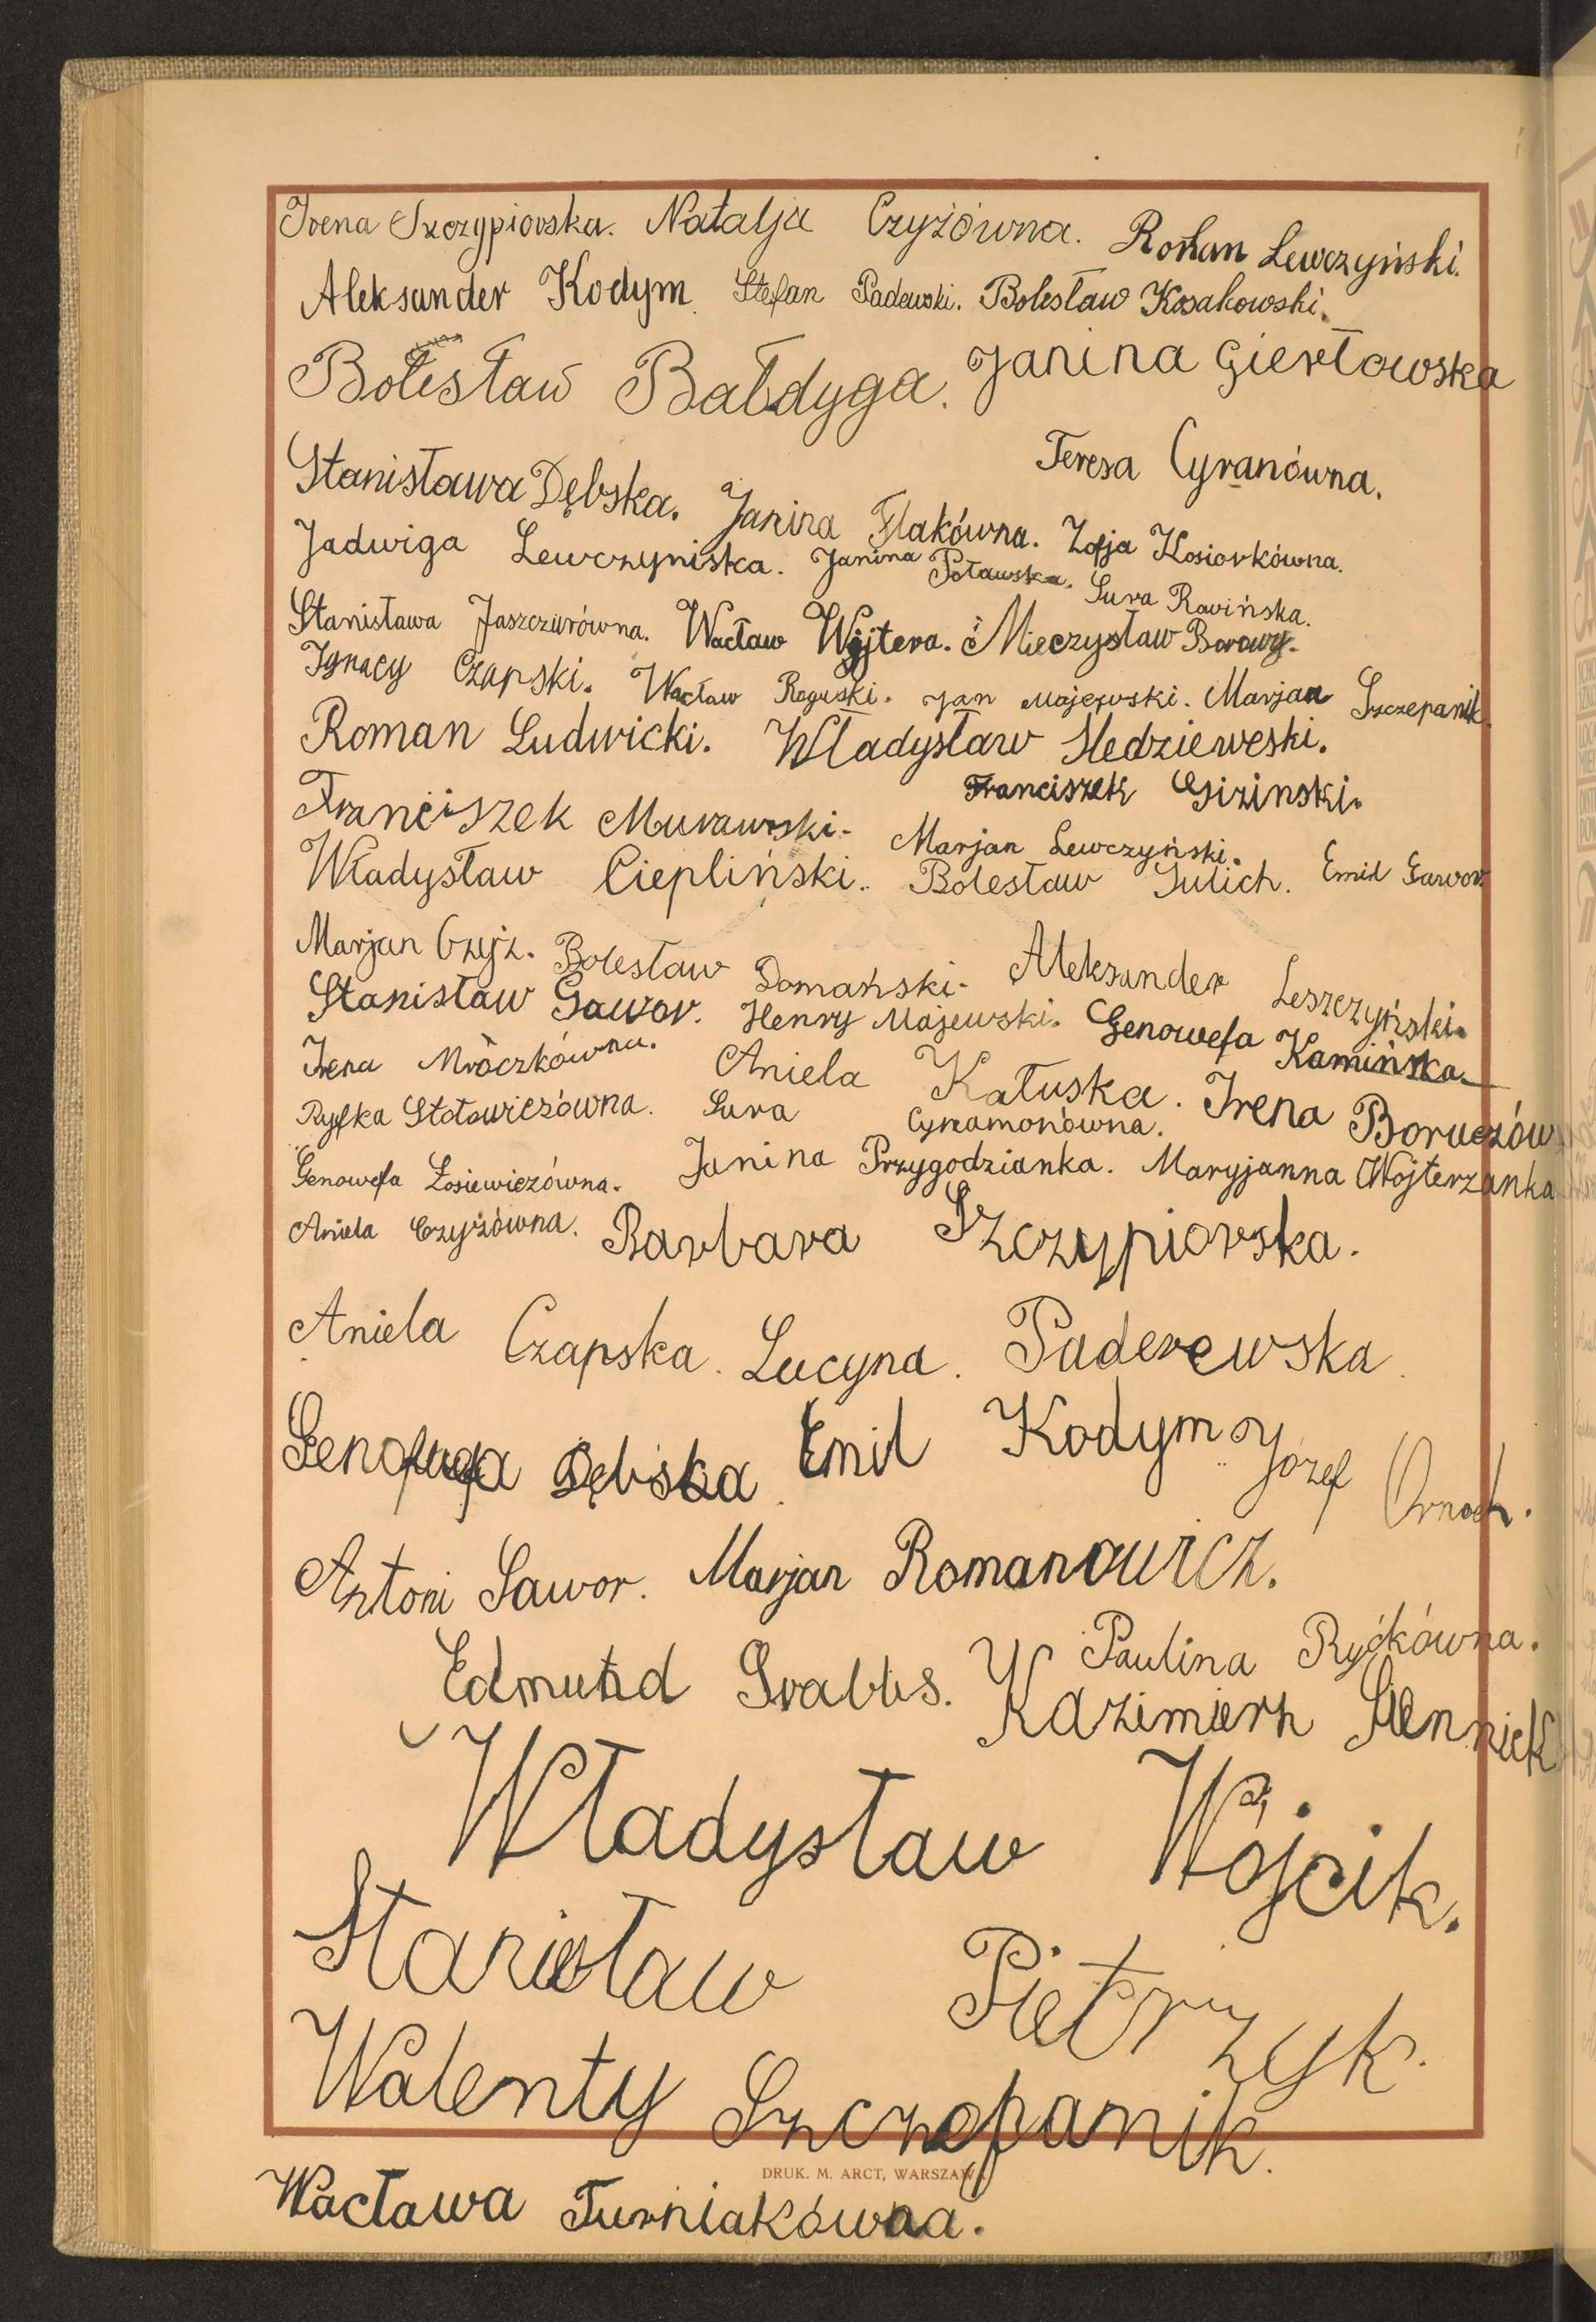 Irena Szczypiorska. Natalja Czyżówna. Roman Lewczyński.
Aleksander Kodym. Stefan Padewski. Bolesław Kosakowski.
Bolesław Bałdyga. Janina Gierłowska
Teresa Cyranówna.
Stanisława Dębska. Janina Flakówna. Zofja Kosiorkówna.
Jadwiga Lewczyniska. Janina Potawska. Sura Rawińska.
Stanisława Jaszczurówna. Wacław Wójtera. Mieczysław Borowy.
Ignacy Czapski. Wacław Roguski. Jan Majewski. Marjan Szczepanik.
Roman Ludwicki. Władysław Śledziewski.
Franciszek Gizinski.
Franciszek Murawski. Marjan Lewczyński.
Władysław Ciepliński. Bolesław Julich. Emil Gawor
Marjan Czyż. Bolesław Domański. Aleksander Leszczyński.
Stanisław Gawor. Henry Majewski. Genowefa Kamińska
Irena Mroczkówna. Aniela Katuska. Irena Boruczów
Ryfka Stotowiczówna. Sura Cynamonówna.
Genowefa Łosiewiczówna. Janina Przygodzianka. Maryjanna Wojterzanka
Aniela Czyżówna. Barbara Szczypiorska.
Aniela Czapska. Lucyna. Paderewska.
Dębska. Emil Kodym Józef Ornoch.
Antoni Gawor. Marjan Romanowicz.
Paulina Ryćkówna.
Edmund Grabbs. Kazimierz Siennick
Władysław Wójcik.
Stanisław Pietrzyk.
Walenty Szczepanik.
DRUK. M. ARCT, WARSZAWA
Wacława Turniakówna.